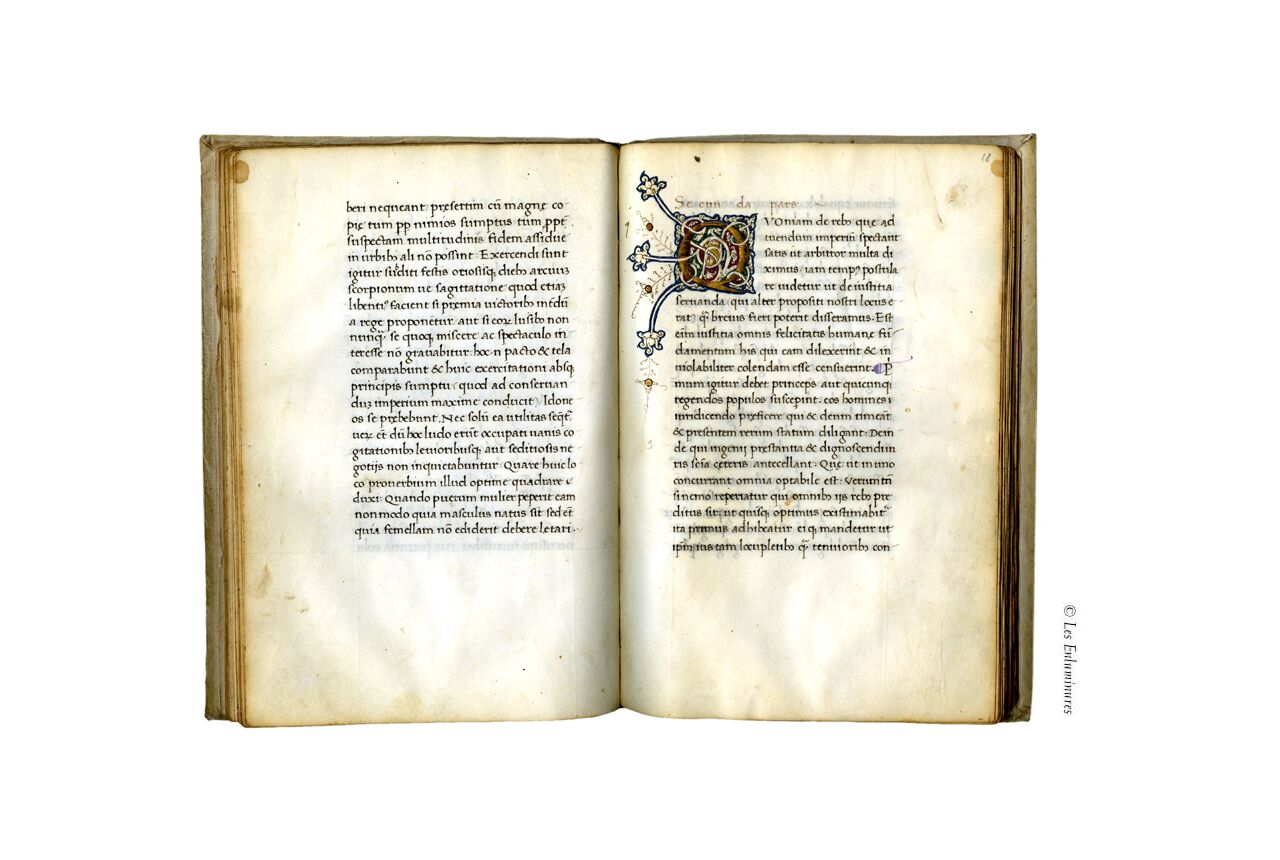 beri nequeant presertim cũ magnę co
pię tum pp nimios sumptus tum ꝓpt̃
suspectam multitudinis fidem assidue
in urbibo ali nõ possint · Exercendi sunt
igitur festis otiosisq; diebo arcuuʒ
scorpionum ue sagittatione quod etiaʒ
libenti⁹ facient si premia uictoribo
a rege proponẽtur aut si lusibo non
nunq̃ se quoq; miscere ac spectaculo in
teresse nõ grauabitur · hoc n pacto & tela
comparabunt & huic exercitationi absq;
principis sumptu quod ad conseruan
duʒ imperium maxime conducit Idone
os se prębebunt. Nec solũ ea utilitas
dũ hoc ludo erũt occupati uanis co
gitationibo leuioribusq; aut seditiosis ne
gotijs non inquietabuntur · Quare huic lo
co prouerbium illud optime quadrare
duxi · Quando puerum mulier peperit eam
non modo quia masculus natus sit sed et̃
quia femellam nõ ediderit debere lętari ·
18
Secunda pars
VOniam de rebo quę ad
tuendum imperiũ spectant
satis ut arbitror multa di
ximus iam temp⁹ postula
re uidetur ut de iustitia
seruanda qui alter propositi nostri locus e
rat q̃ breuis fieri poterit disseramus · Est
eñi iustitia omnis felicitatis humanę fũ
damentum his qui eam dilexerint & in
uiolabiliter colendam esse censuerint · P
mum igitur debet princeps aut quicunq;
regendos populos suscepint · eos homines i
iuridicendo pręficere qui & deum timeãt
& presentem rerum statum diligant · Dein
de qui ingenij prestantia & dignoscendi iu
ris sciẽa ceteris antecellant · Quę ut in uno
concurrant omnia optabile est · Verum tñ
si nemo reperiatur qui omnibo ijs rebo pre
ditus sit · ut quisq; optimus existimabit̃
ita primus adhibeatur eiq; mandetur ut
ius tam locupletibo q̃ tenuioribo con
© Les Enluminures